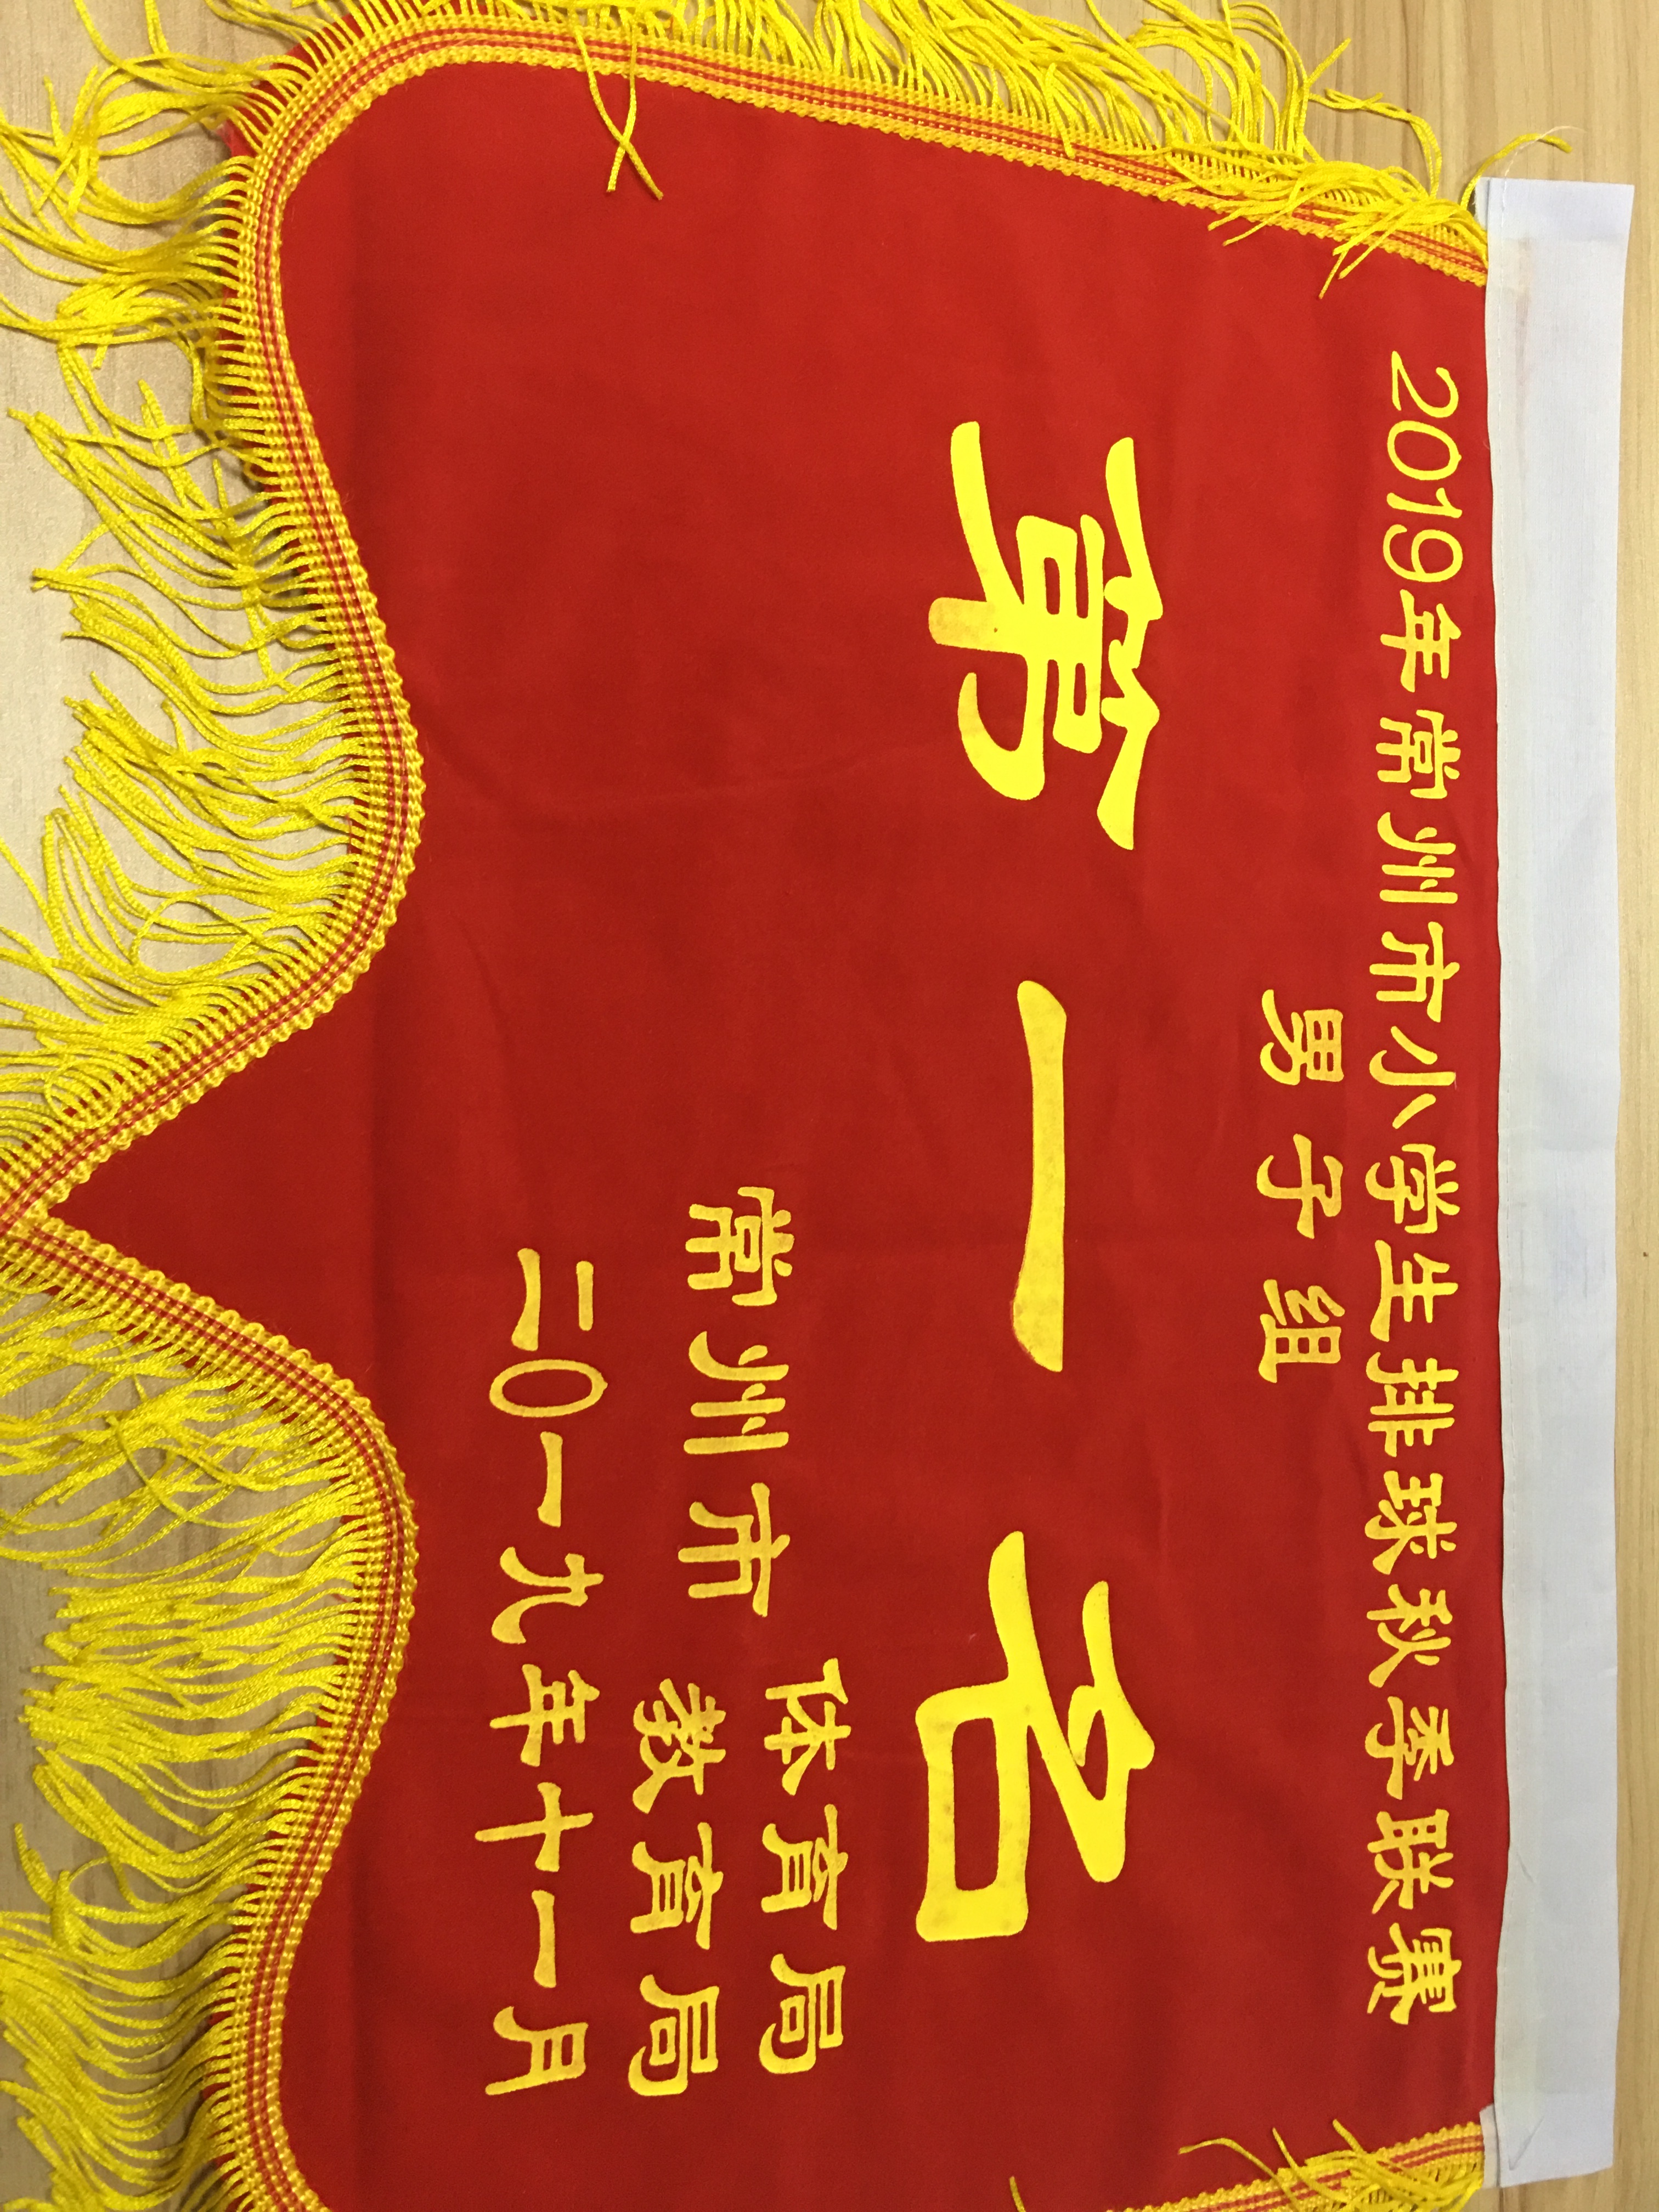 2019年常州市小学生排球秋季联赛
男子组
第一名
常州市 体育局
教育局
二0一九年十一月